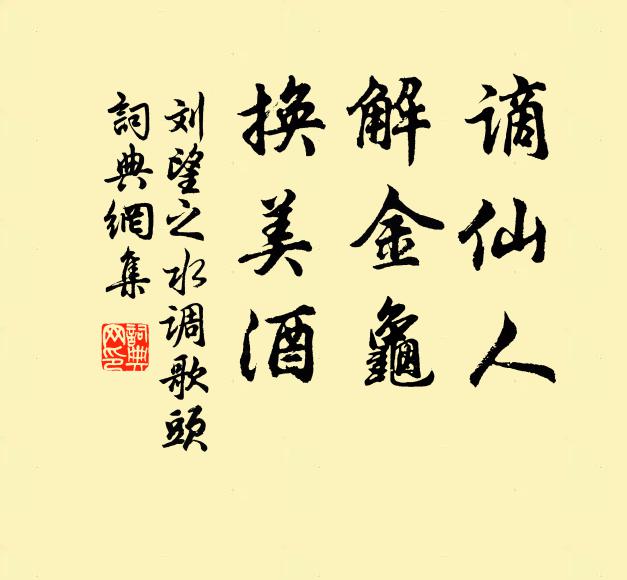 谪仙人
解金龜
换美酒
刘望之水调歌頭
詞典網集
詞典网印